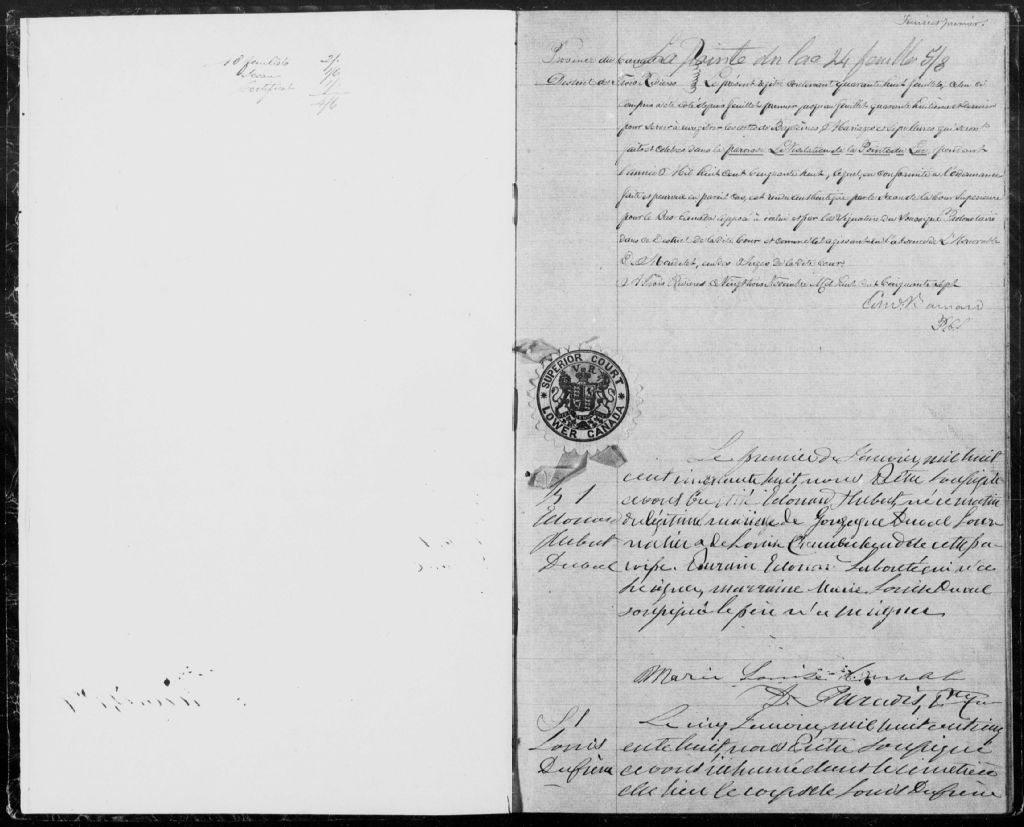 18 feuillets 3/
Sceau 1/6
Certificat
feuillet premier.
Province du Canada La Pointe du lac 24 feuilles 5/8
District des Trois Rivières Le présent registre contenant quarante huit feuillets, celui ci
compris a été coté depuis feuillet premier jusqu'au feuillet quarante huitième et dernier
pour servir à enregistrer les actes de Baptêmes, Mariages et sépultures qui seront
faits et célébrés dans la paroisse La Visitation de la Pointe du Lac, pendant
l'année Mil huit cent cinquante huit, lequel, en conformité à l'ordonnance
faite et pourvue en pareil cas, est rendu authentique par le sceau de la Cour Supérieure
pour le Bas Canada apposé à icelui et par la signature du soussigné Protonotaire
dans ce District de la dite Cour et comme tel agissant en l'absence de L'Honorable
D. Mondelet, un des Juges de la dite Cour
Trois Rivières ce vingt trois Novembre Mil huit cent cinquante sept
Edw. Barnard
SUPERIOR COURT
V R
LOWER CANADA
B 1
Edouard
Hubert
Duval
Le premier de Janvier, mil huit
cent cinquante huit nous Prêtre soussigné
avons baptisé Edouard Hubert, né ce matin
du légitime mariage de Duval Jour-
nalier & de Louise de cette pa-
roisse. Parrain Edouard qui n'a
pu signer, marraine Marie Louise Duval
soussignée le père n'a pu signer
Marie Louise Duval
D. Paradis, Ptre
S 1
Louis
Dufrène
Le cinq Janvier, mil huit cent cinq
ente huit, nous Prêtre soussigné
avons inhumé dans le cimetière
du lieu le corps de Louis Dufrène